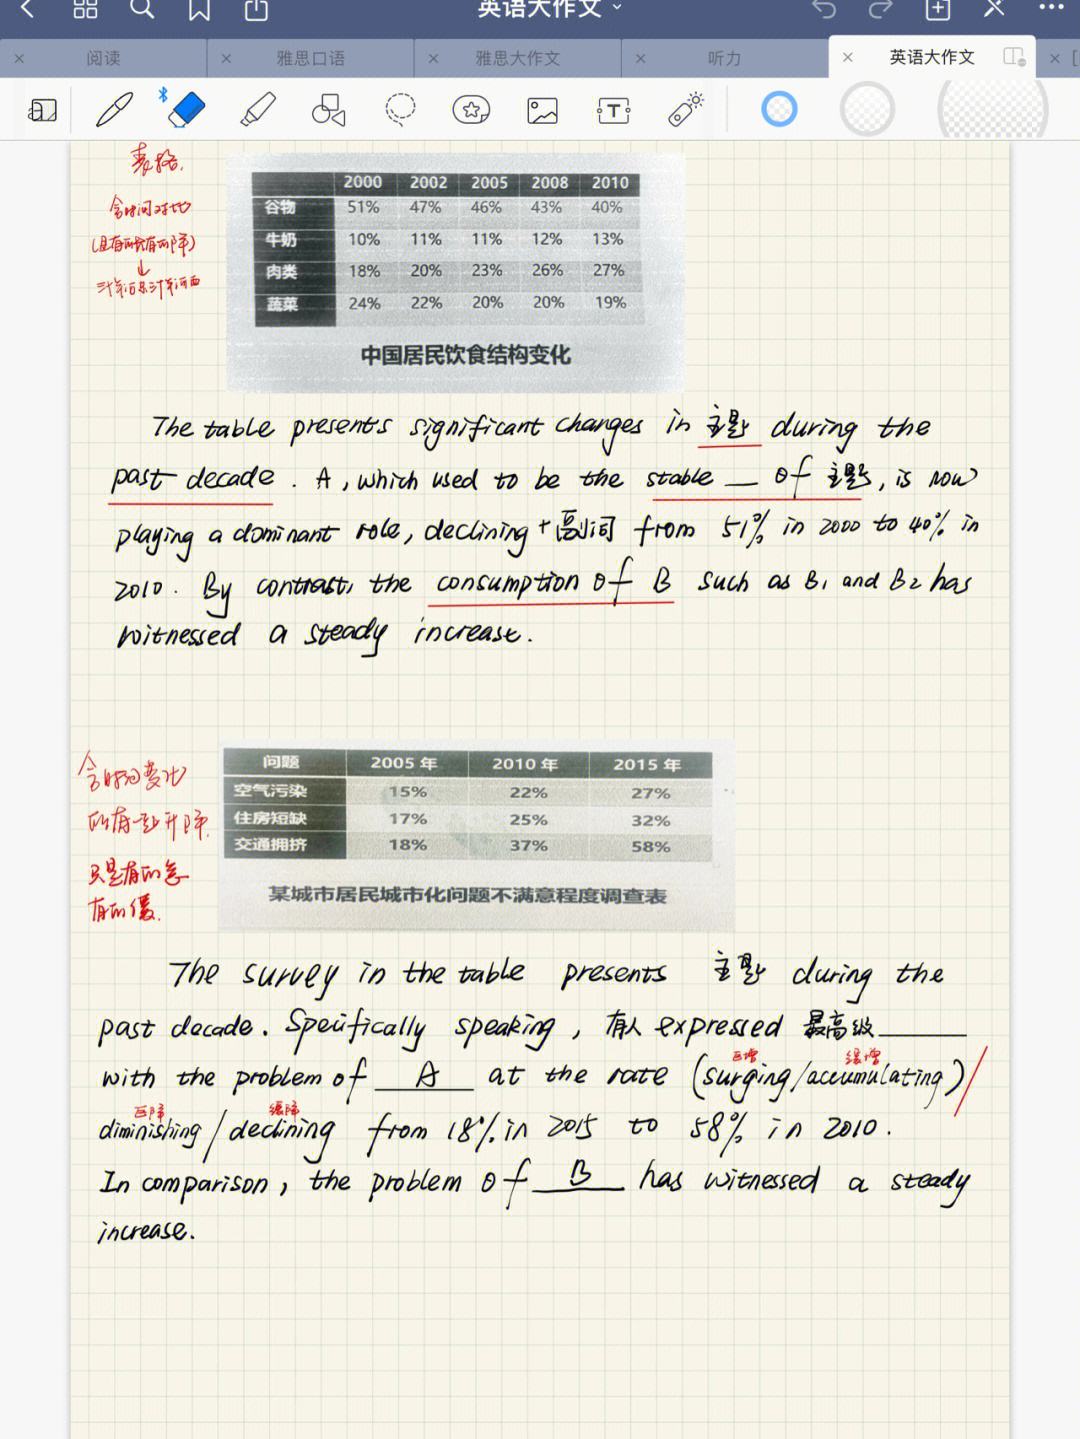 英语大作文
阅读
雅思口语
雅思大作文
听力
英语大作文
表格.
含时间对比
(且有的升有的降)
↓
三十年河东三十年河西
2000 2002 2005 2008 2010
谷物 51% 47% 46% 43% 40%
牛奶 10% 11% 11% 12% 13%
肉类 18% 20% 23% 26% 27%
蔬菜 24% 22% 20% 20% 19%
中国居民饮食结构变化
The table presents significant changes in 主题 during the
past decade. A, which used to be the stable __ of 主题, is now
playing a dominant role, declining + 副词 from 51% in 2000 to 40% in
2010. By contrast, the consumption of B such as B1 and B2 has
witnessed a steady increase.
含时间变化
所有一起升降.
只是有的急
有的缓.
问题 2005 年 2010 年 2015 年
空气污染 15% 22% 27%
住房短缺 17% 25% 32%
交通拥挤 18% 37% 58%
某城市居民城市化问题不满意程度调查表
The survey in the table presents 主题 during the
past decade. Specifically speaking, 有人 expressed 最高级______
with the problem of __A__ at the rate (surging/accumulating)/
急增 缓增
急降 缓降
diminishing/declining from 18% in 2015 to 58% in 2010.
In comparison, the problem of __B__ has witnessed a steady
increase.